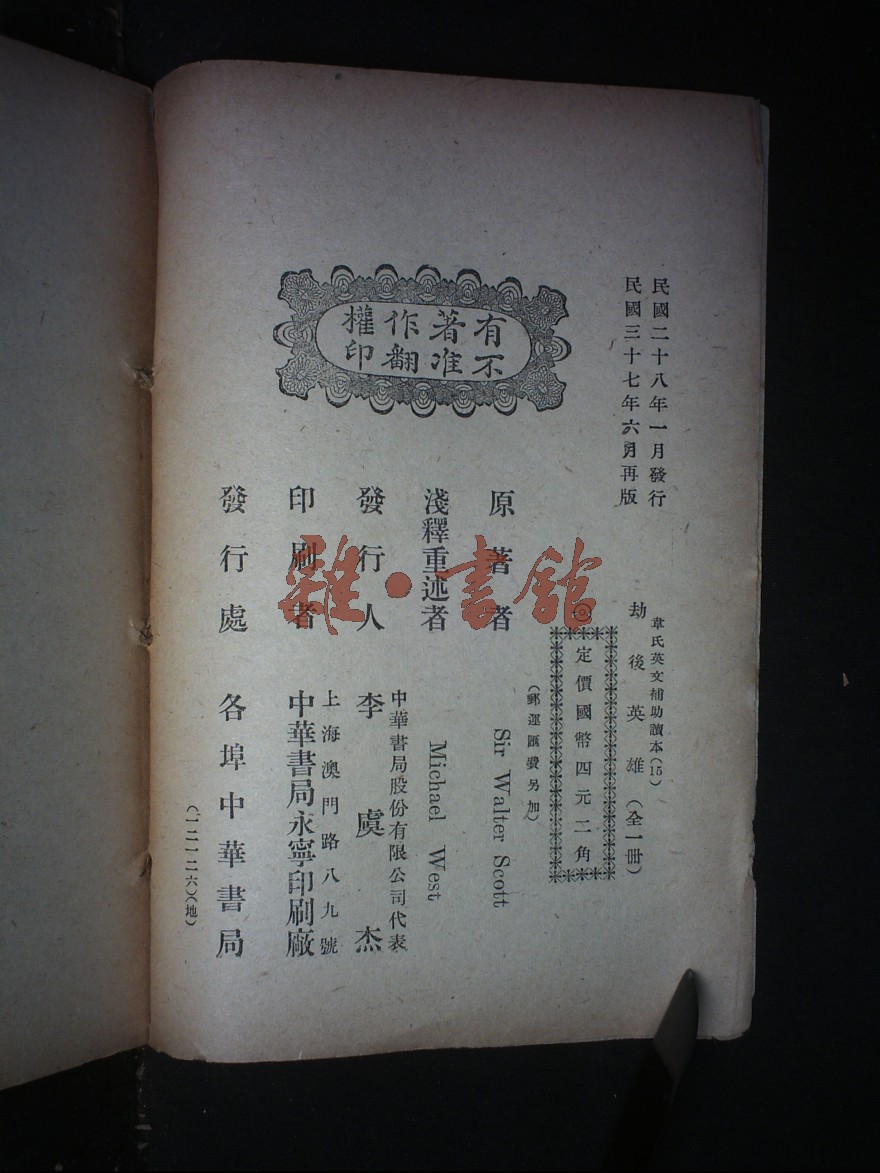 民國二十八年一月發行
民國三十七年六月再版
有著作權
不准翻印
韋氏英文補助讀本(15)
劫後英雄(全一冊)
◎定價國幣四元二角
(郵運匯費另加)
原著者 Sir Walter Scott
淺釋重述者 Michael West
發行人 中華書局股份有限公司代表
李虞杰
印刷者 上海澳門路八九號
中華書局永寧印刷廠
發行處 各埠中華書局
(一二一二六)(地)
雜·書館